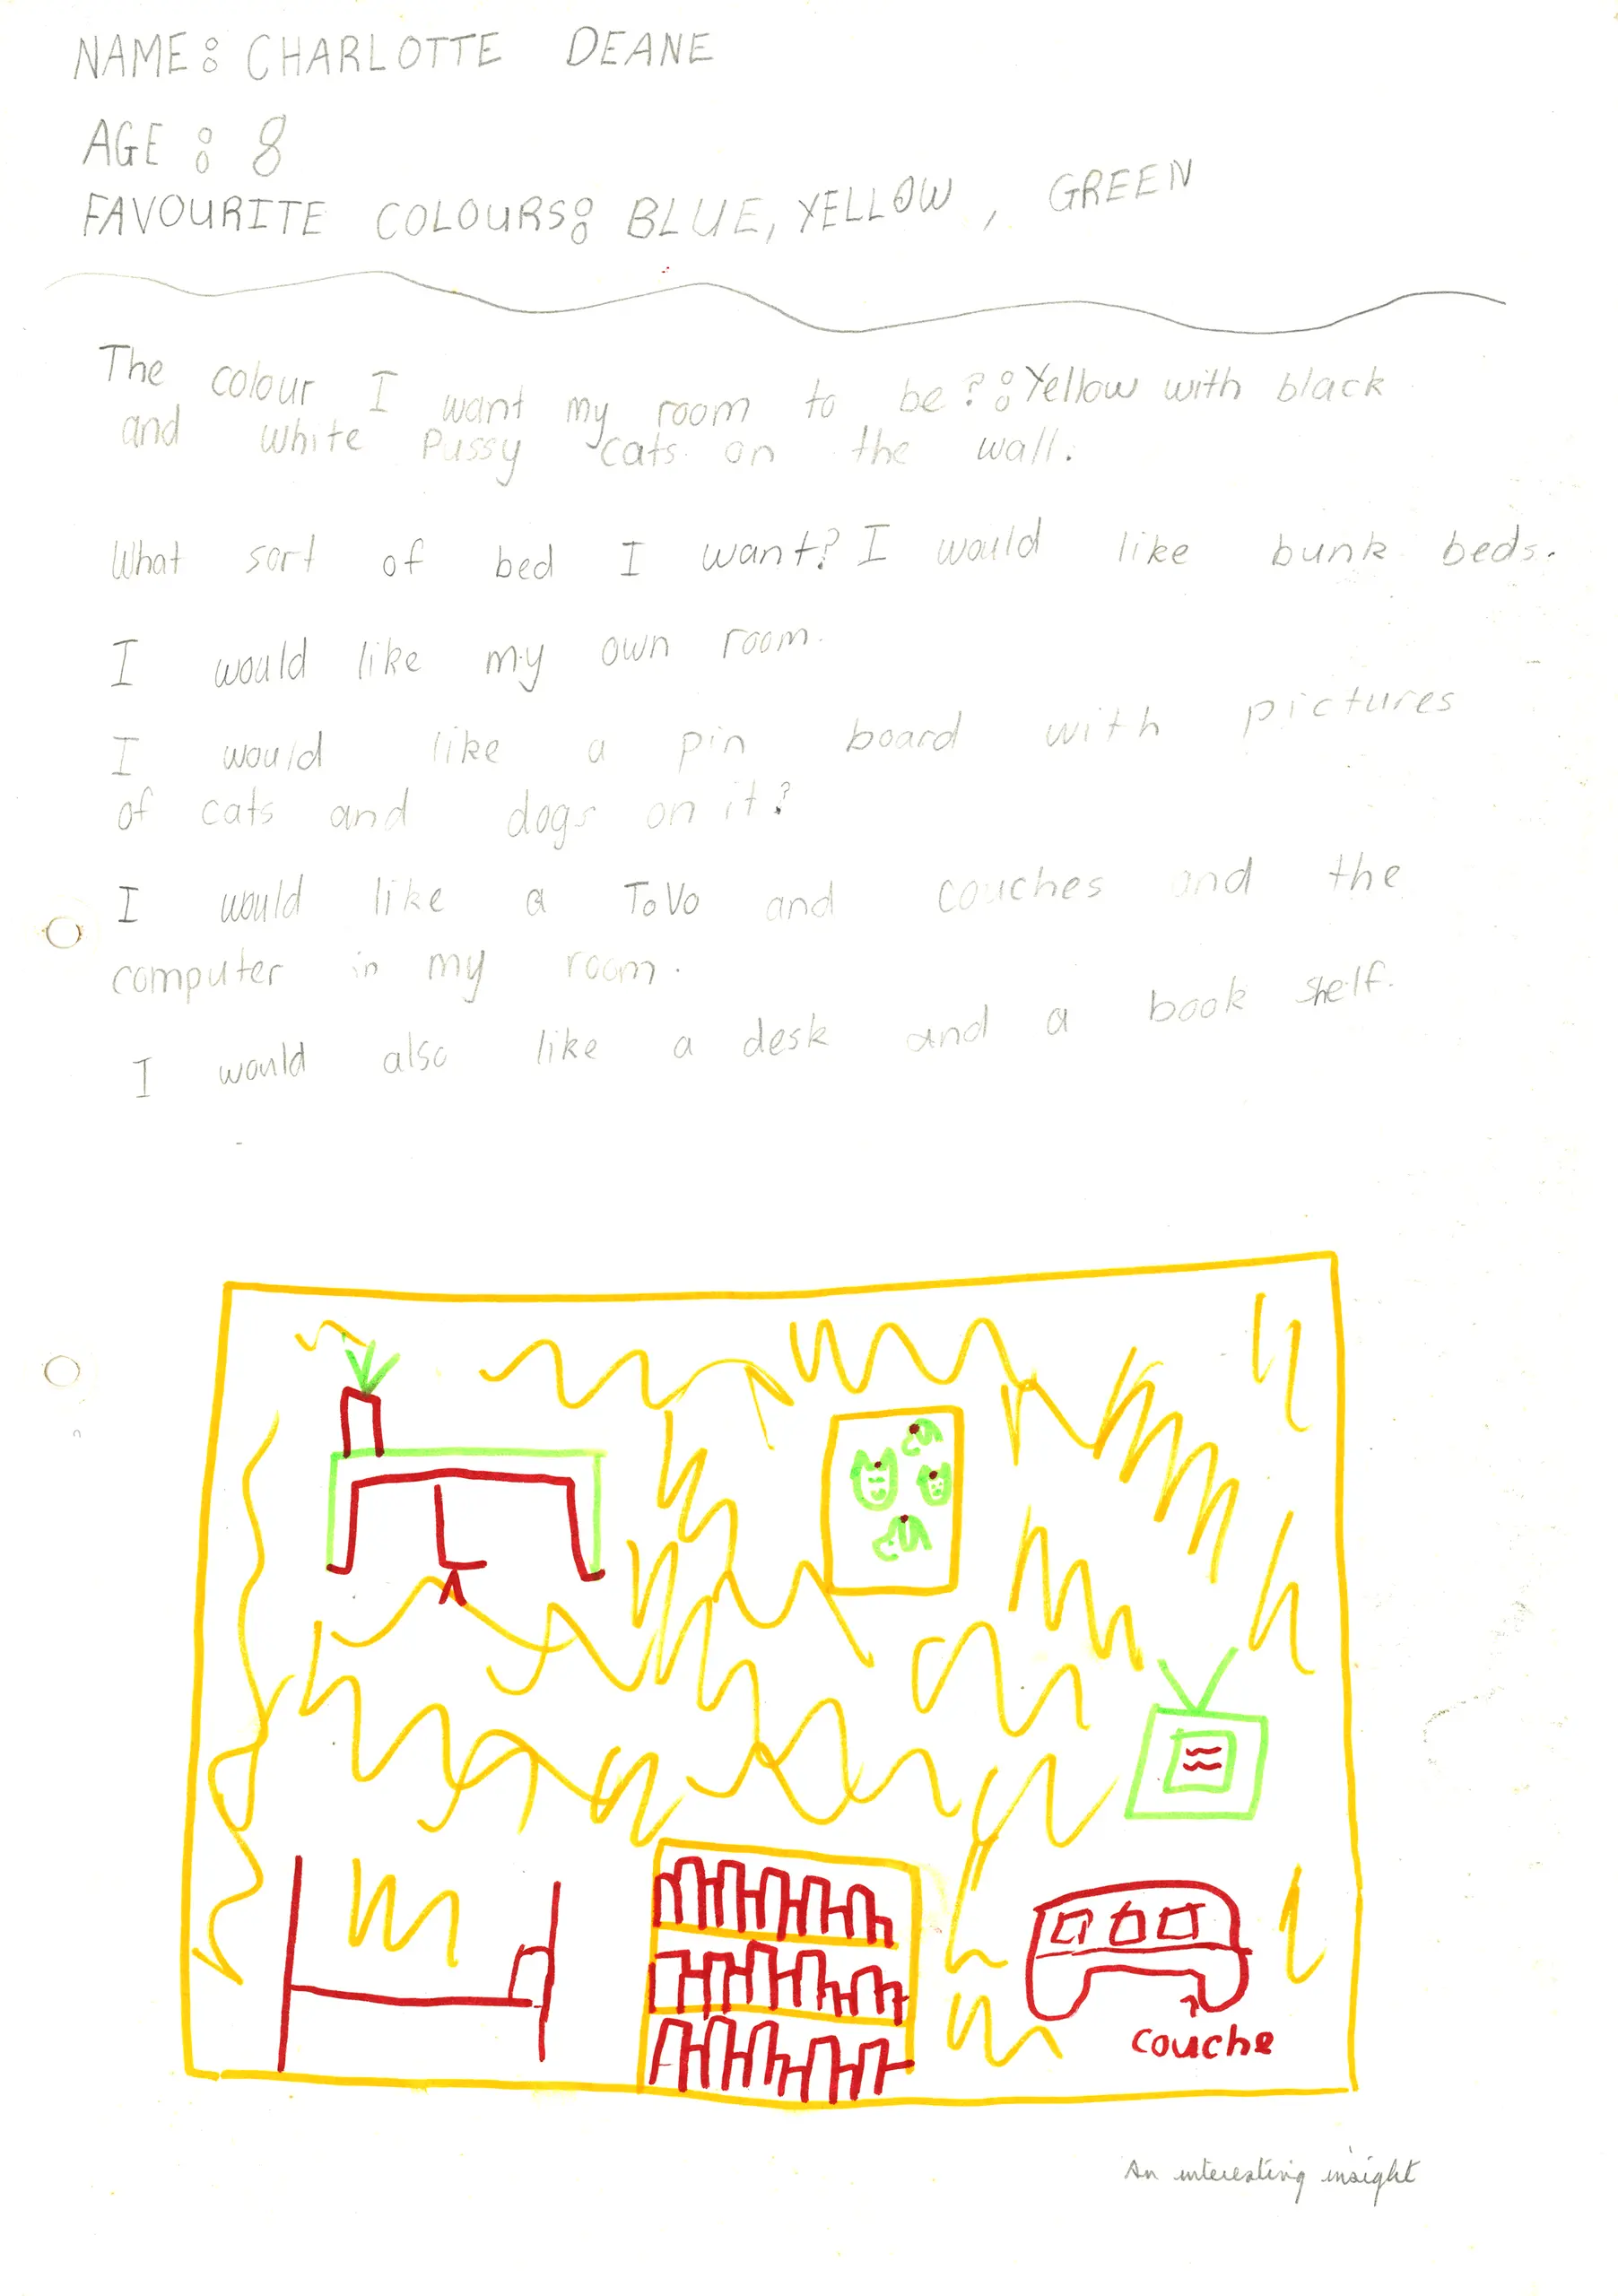 NAME: CHARLOTTE DEANE
AGE: 8
FAVOURITE COLOURS: BLUE, YELLOW, GREEN
The colour I want my room to be?: Yellow with black
and white Pussy cats on the wall.
What sort of bed I want? I would like bunk beds.
I would like my own room.
I would like a pin board with pictures
of cats and dogs on it?
I would like a ToVo and couches and the
computer in my room.
I would also like a desk and a book shelf.
couche
An interesting insight